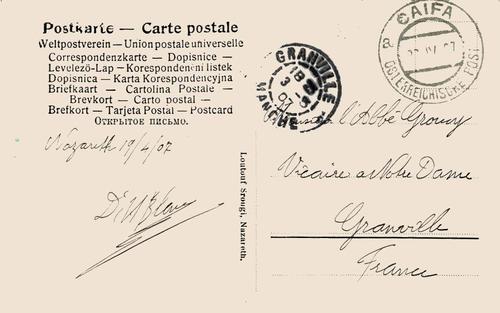 Postkarte — Carte postale
Weltpostverein — Union postale universelle
Correspondenzkarte — Dopisnice —
Levelező-Lap — Korespondenčni listek
Dopisnica — Karta Korespondencyjna
Briefkaart — Cartolina Postale —
Brevkort — Carto postal —
Brefkort — Tarjeta Postal — Postcard
Открытое письмо.
Nazareth 19/4/07
CAIFA
a
07
ÖSTERREICHISCHE POST
GRANVILLE
18
3 -5
07
MANCHE
l'Abbé Grousy
Vicaire a Notre Dame
Granville
France
Loutouf Srougi, Nazareth.